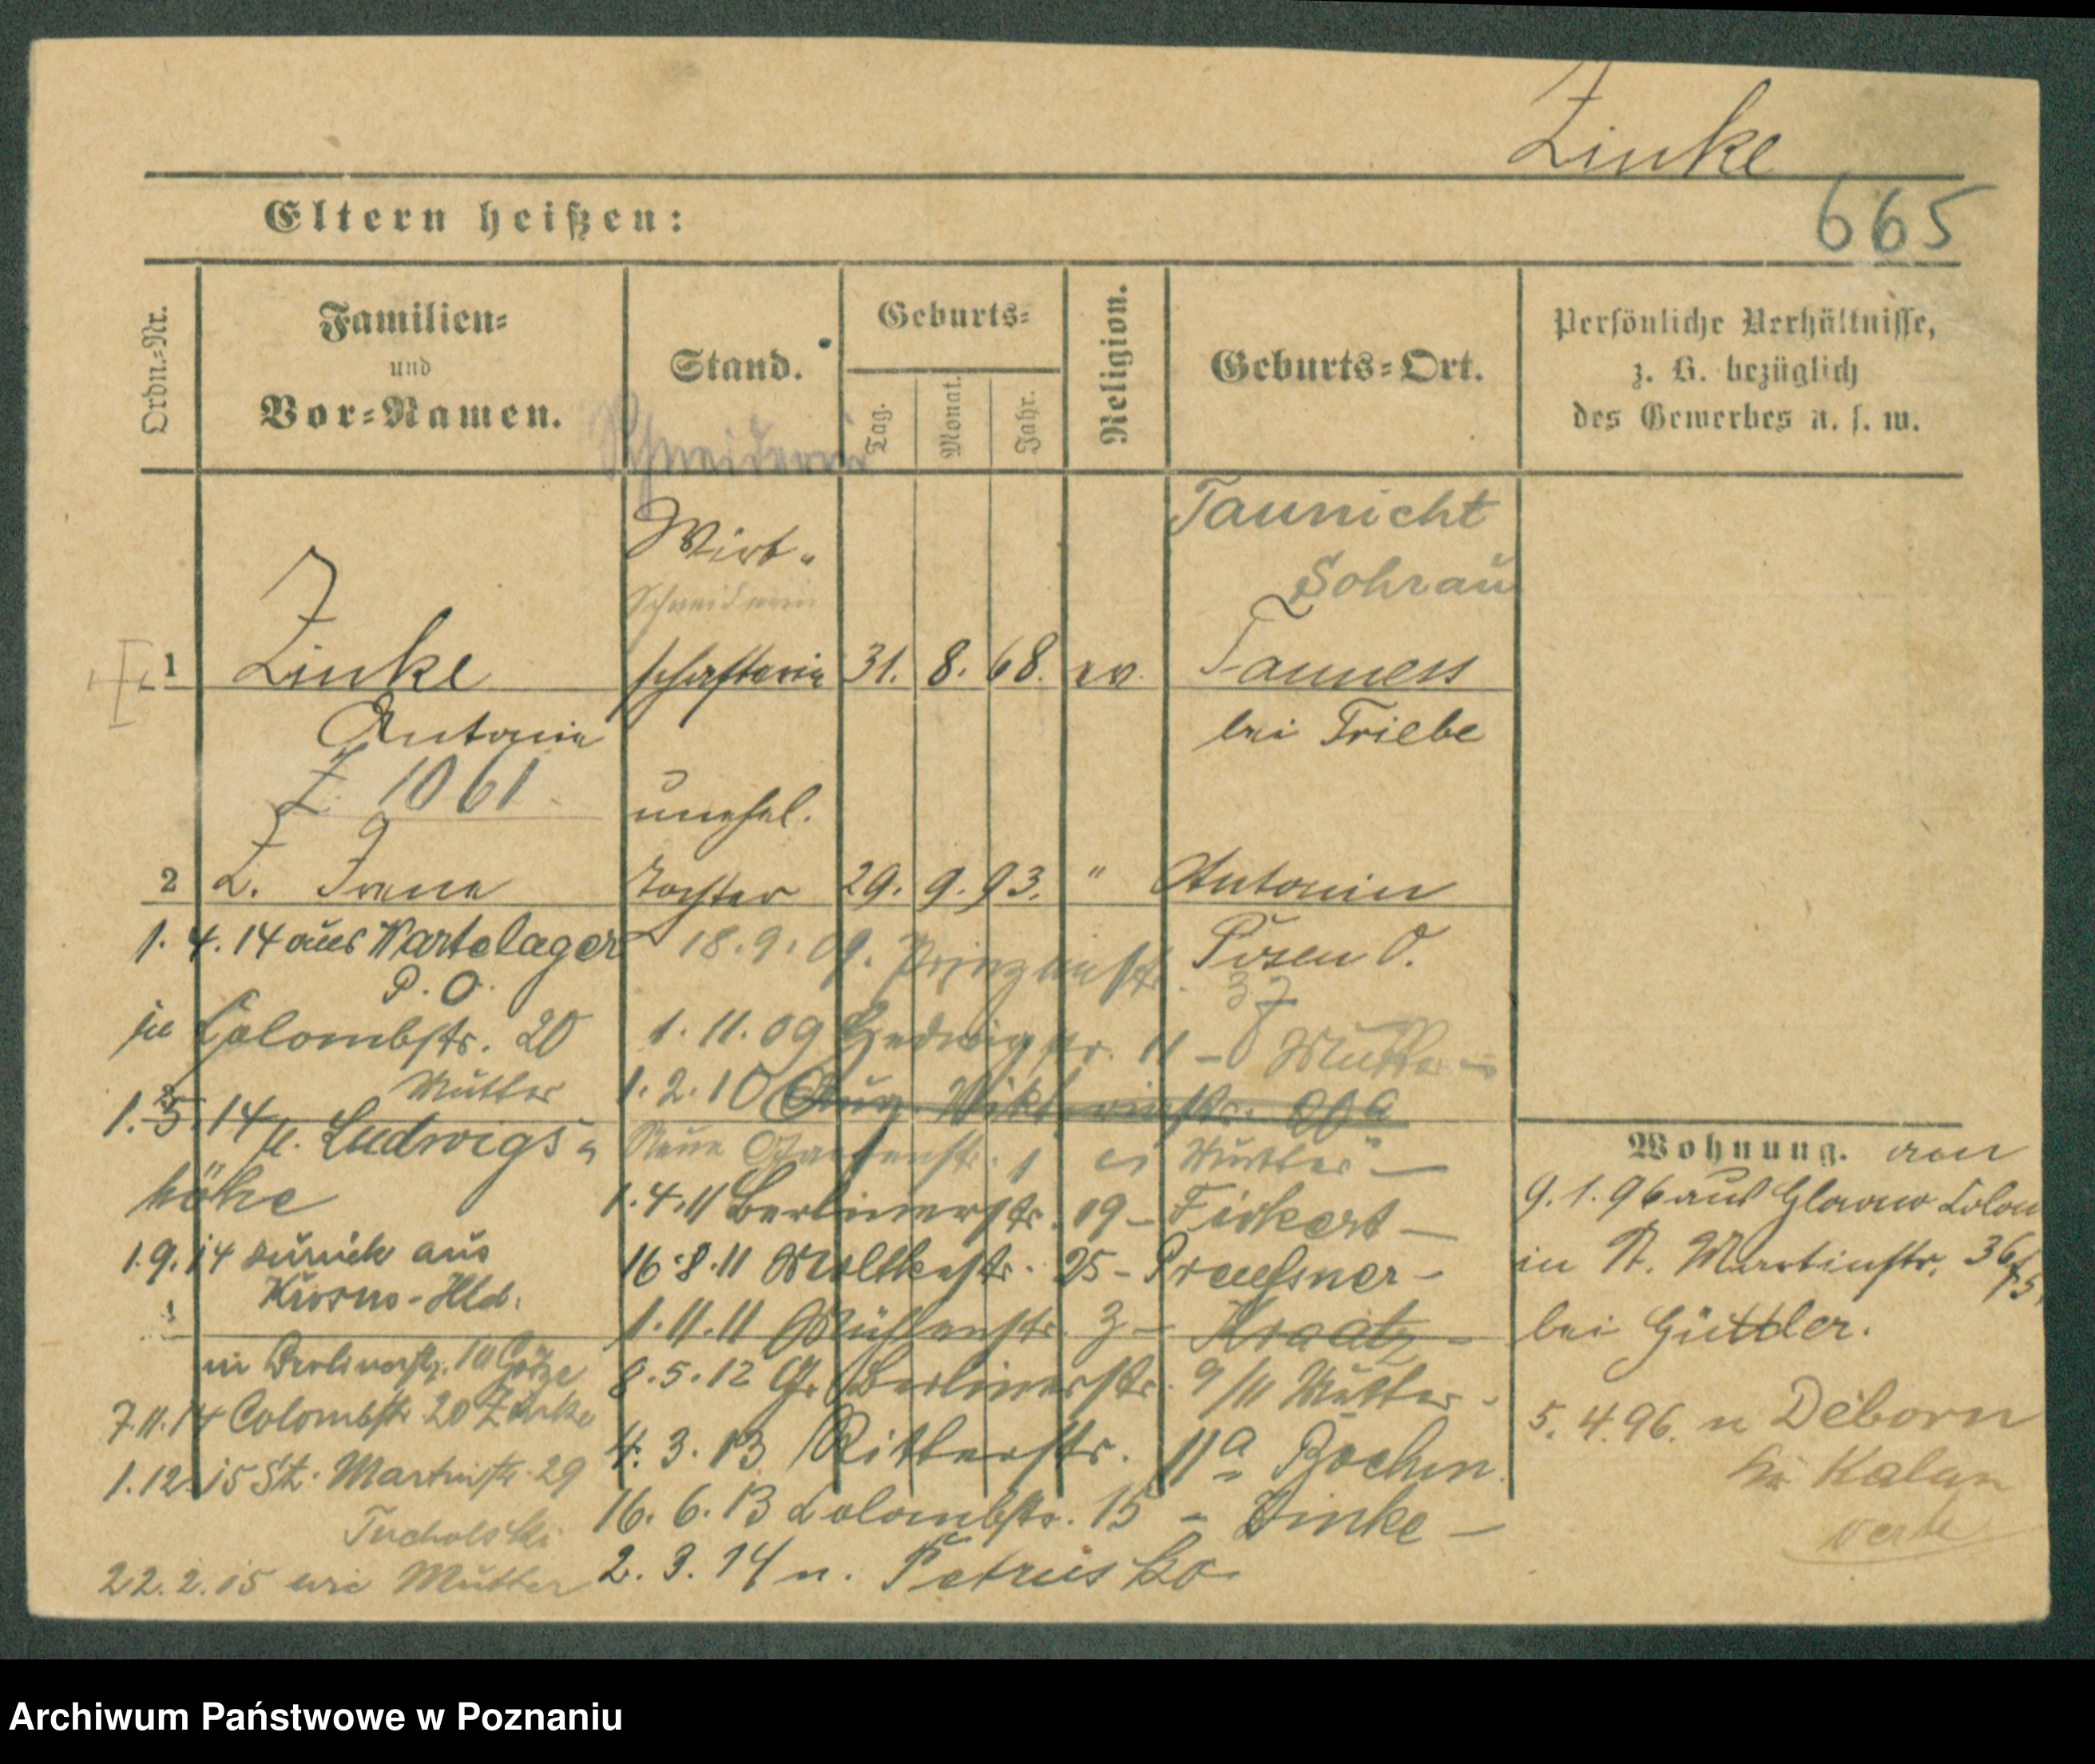 Zinke
665
Eltern heißen:
Ordn.-Nr.
Familien-
und
Vor-Namen.
Stand.
Geburts-
Tag.
Monat.
Jahr.
Religion.
Geburts-Ort.
Persönliche Verhältnisse,
z. B. bezüglich
des Gewerbes u. s. w.
Schneiderin
Wirt-
Schneiderin
Taunicht
Sohrau
1 Zinke schafterin 31. 8. 68. ev.
Antonie bei Triebe
Z. 1061
unehel.
2 Z. Irene Tochter 29. 9. 93. " Antonin
Posen O.
1. 4. 14 aus Wartelager
P. O.
in Colombstr. 20
Mutter
1. 14 n. Ludwigs-
höhe
1.9.14 zurück aus
Krosno-Hld.
in Berlinerstr. 10 Götze
7.11.14 Colombstr 20 Zinke
1.12.15 St. Martinstr. 29
Tucholski
22.2.15 wie Mutter
18. 9. 09. Prinzenstr. 37
1. 11. 09 Hedwigstr. 11 - Mutter -
1. 2. 10 Aug. Viktoriastr.
Neue Gartenstr. 1 Mutter -
1. 4. 11 Berlinerstr. 19 - Fickert -
16. 8. 11 Moltkestr. 25 - Preußner -
1. 11. 11 Mühlenstr. 3 - Kraatz -
8. 5. 12 Gr. Berlinerstr. 9/11 Mutter -
4. 3. 13 Ritterstr. 11a Boehm
16. 6. 13 Colombstr. 15 - Zinke -
2. 3. 14 n. Petrus
Wohnung.
9. 1. 96 aus Glowno Colon
in St. Martinstr. 36
bei Güttler.
5. 4. 96. n Deborn
Archiwum Państwowe w Poznaniu